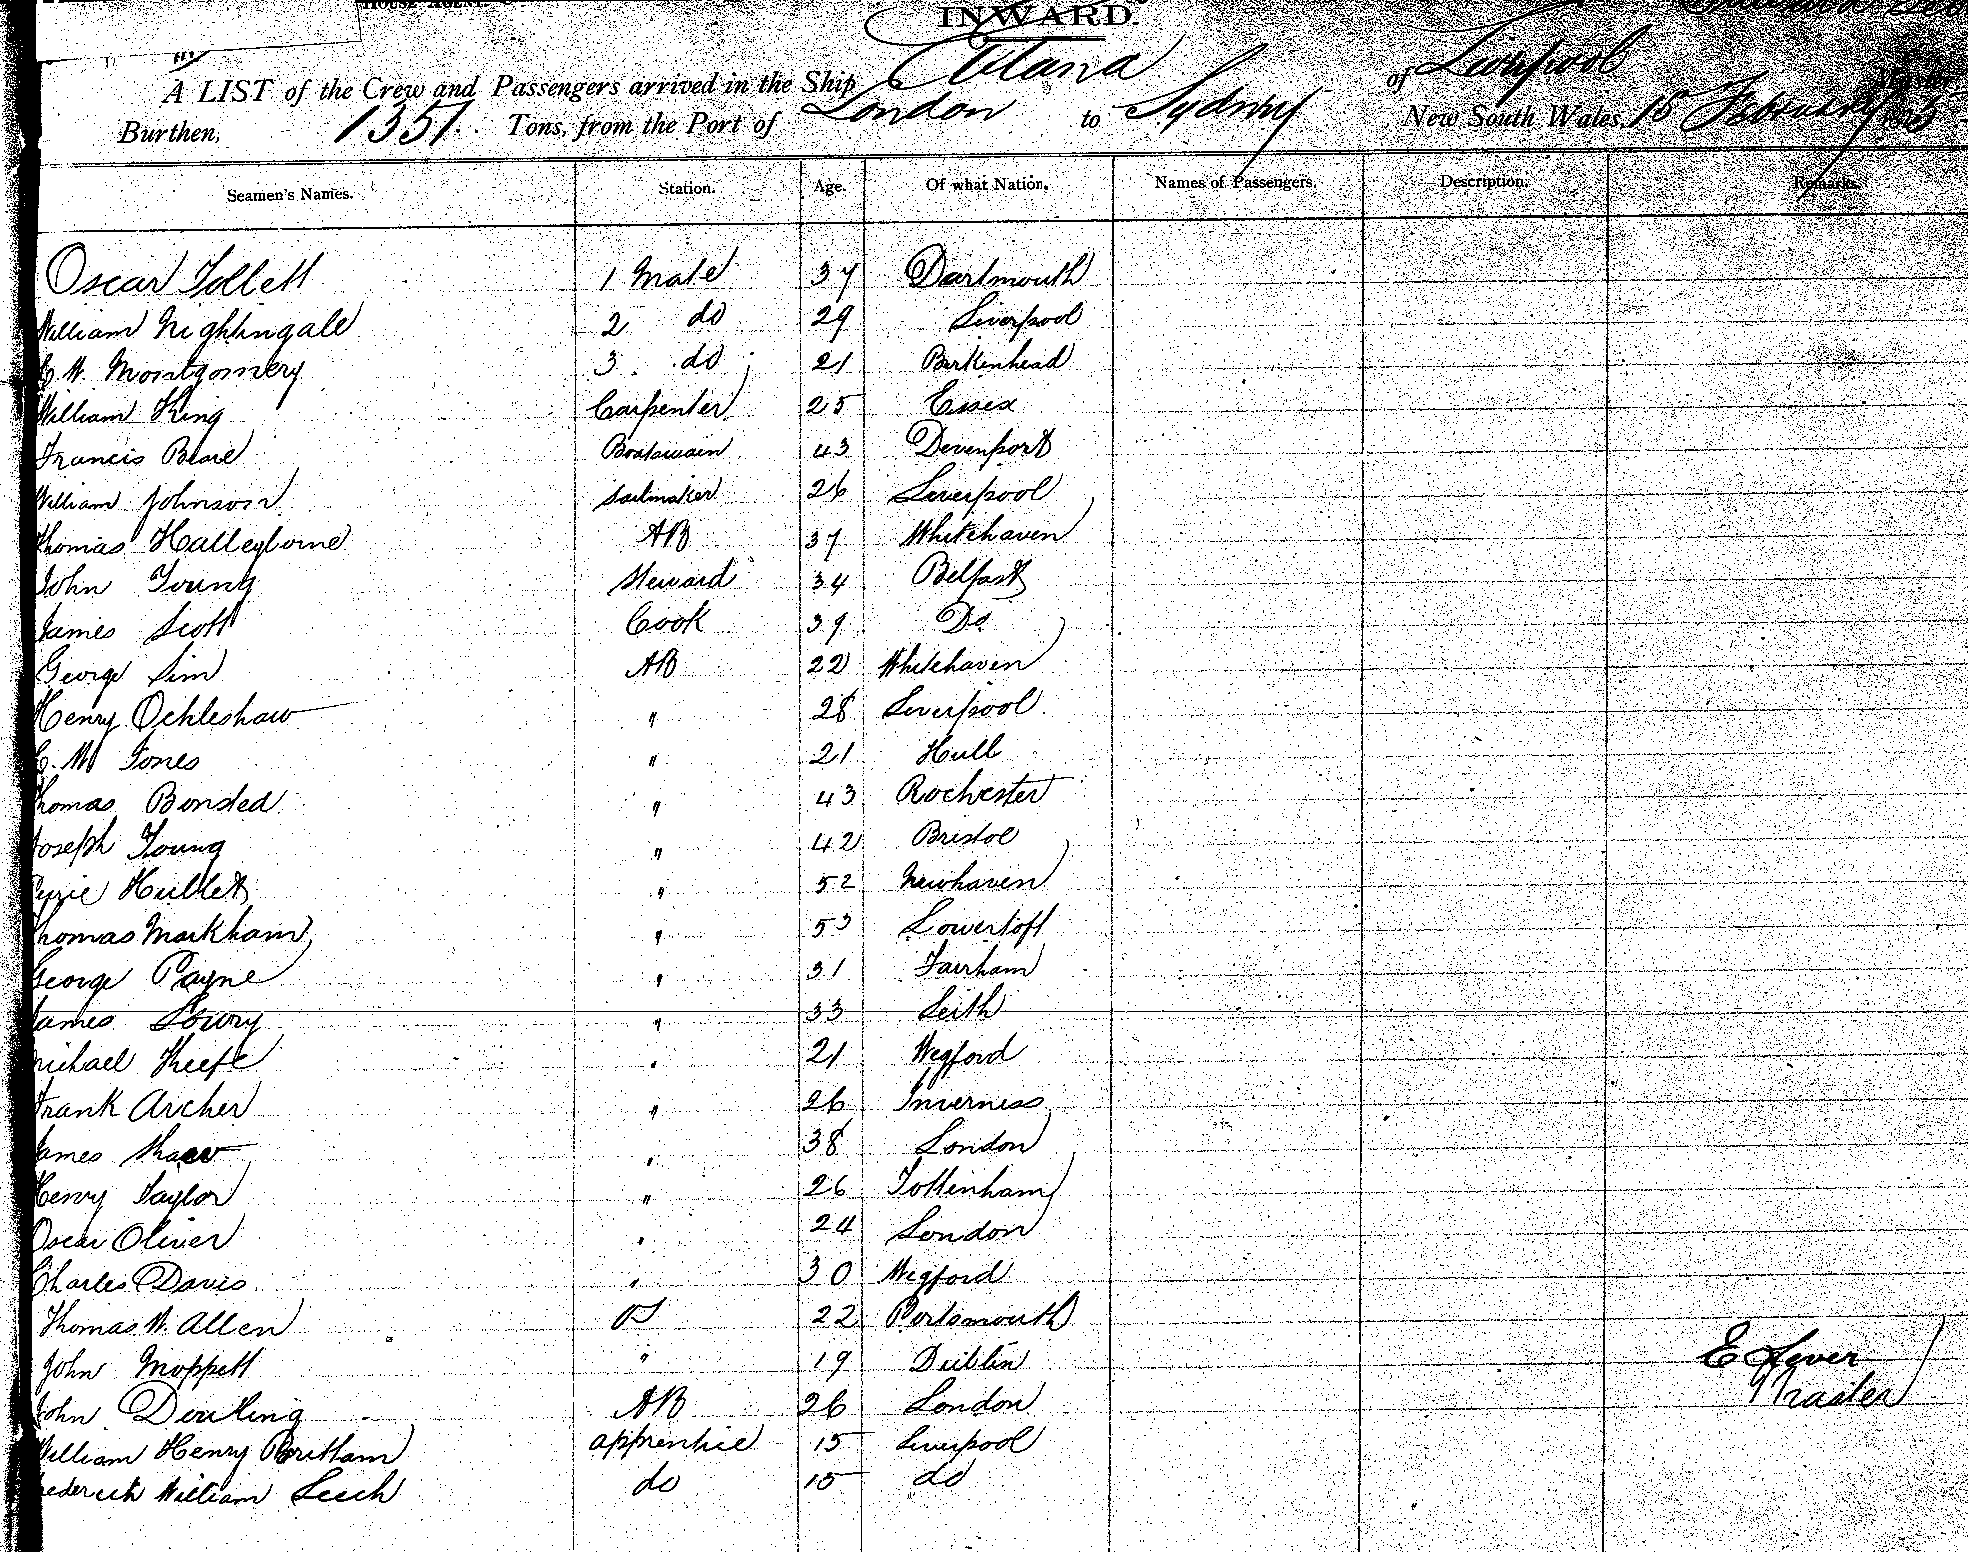 HOUSE AGENT.
INWARD.
A LIST of the Crew and Passengers arrived in the Ship of Liverpool
Burthen, 1351 Tons, from the Port of London to Sydney New South Wales, 15 February
Seamen's Names. Station. Age. Of what Nation. Names of Passengers. Description. Remarks.
Oscar Tollett 1 Mate 37 Dartmouth
William Nightingale 2 do 29 Liverpool
W. Montgomery 3 do 21 Birkenhead
William King Carpenter 25 Essex
Francis Beare Boatswain 43 Devenport
William Johnson Sailmaker 26 Liverpool
Thomas AB 37 Whitehaven
John Young Steward 34 Belfast
James Scott Cook 39 Do
George Sim AB 22 Whitehaven
Henry Ockleshaw " 28 Liverpool
W Jones " 21 Hull
Thomas Bonsted " 43 Rochester
Joseph Young " 42 Bristol
Hullett " 52 Newhaven
Thomas Markham " 53 Lowertoft
George Payne " 31 Fairham
James Lowry " 33 Leith
Michael Keefe " 21 Wexford
Frank Archer " 26 Inverness
James Shaw " 38 London
Henry Taylor " 26 Tottenham
Oscar Oliver " 24 London
Charles Davis " 30 Wexford
Thomas W. Allen OS 22 Portsmouth
John Moppett " 19 Dublin
John Dowling AB 26 London
William Henry apprentice 15 Liverpool
Frederick William Leech do 15 do
E Lever
Master